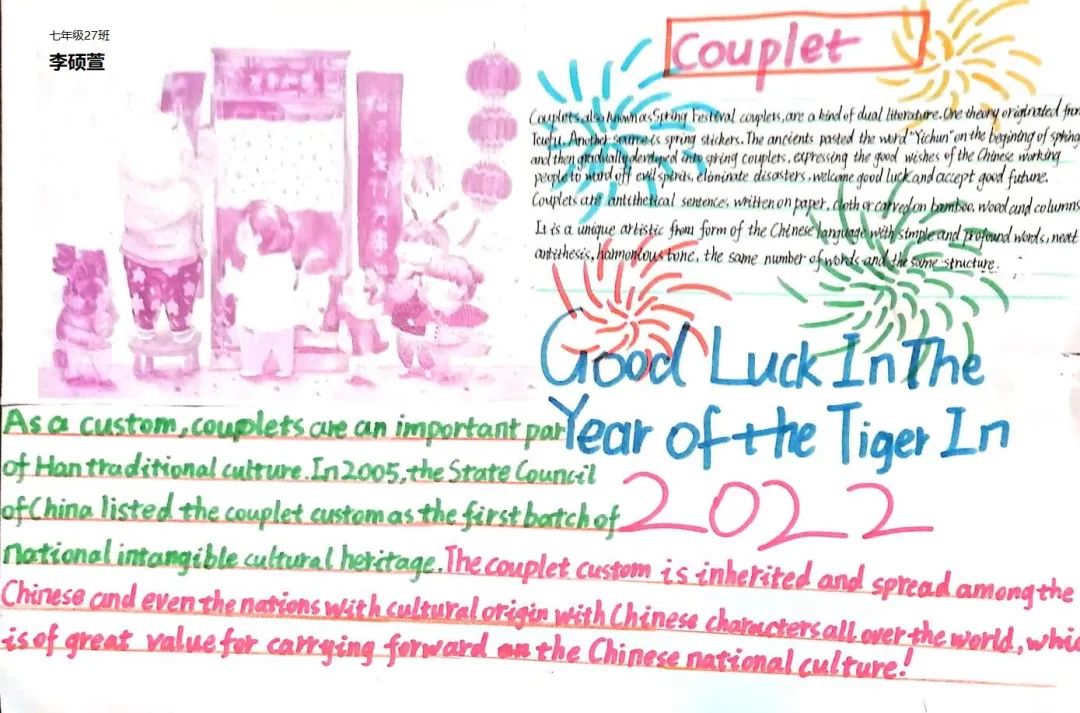 七年级27班
李硕萱
Couplet
Couplets, also known as Spring Festival couplets, are a kind of dual literature. One theory originated from
Taofu. Another source is spring stickers. The ancients pasted the word "Yichun" on the beginning of spring,
and then gradually developed into spring couplets, expressing the good wishes of the Chinese working
people to ward off evil spirits, eliminate disasters, welcome good luck and accept good future.
Couplets are antithetical sentences written on paper, cloth or carved on bamboo, wood and columns
It is a unique artistic from form of the Chinese language with simple and profound words, neat
antithesis, harmonious tone, the same number of words and the same structure.
Good Luck In The
Year of the Tiger In
2022
As a custom, couplets are an important par
of Han traditional culture. In 2005, the State Council
of China listed the couplet custom as the first batch of
national intangible cultural heritage. The couplet custom is inherited and spread among the
Chinese and even the nations with cultural origin with Chinese characters all over the world, whic
is of great value for carrying forward the Chinese national culture!